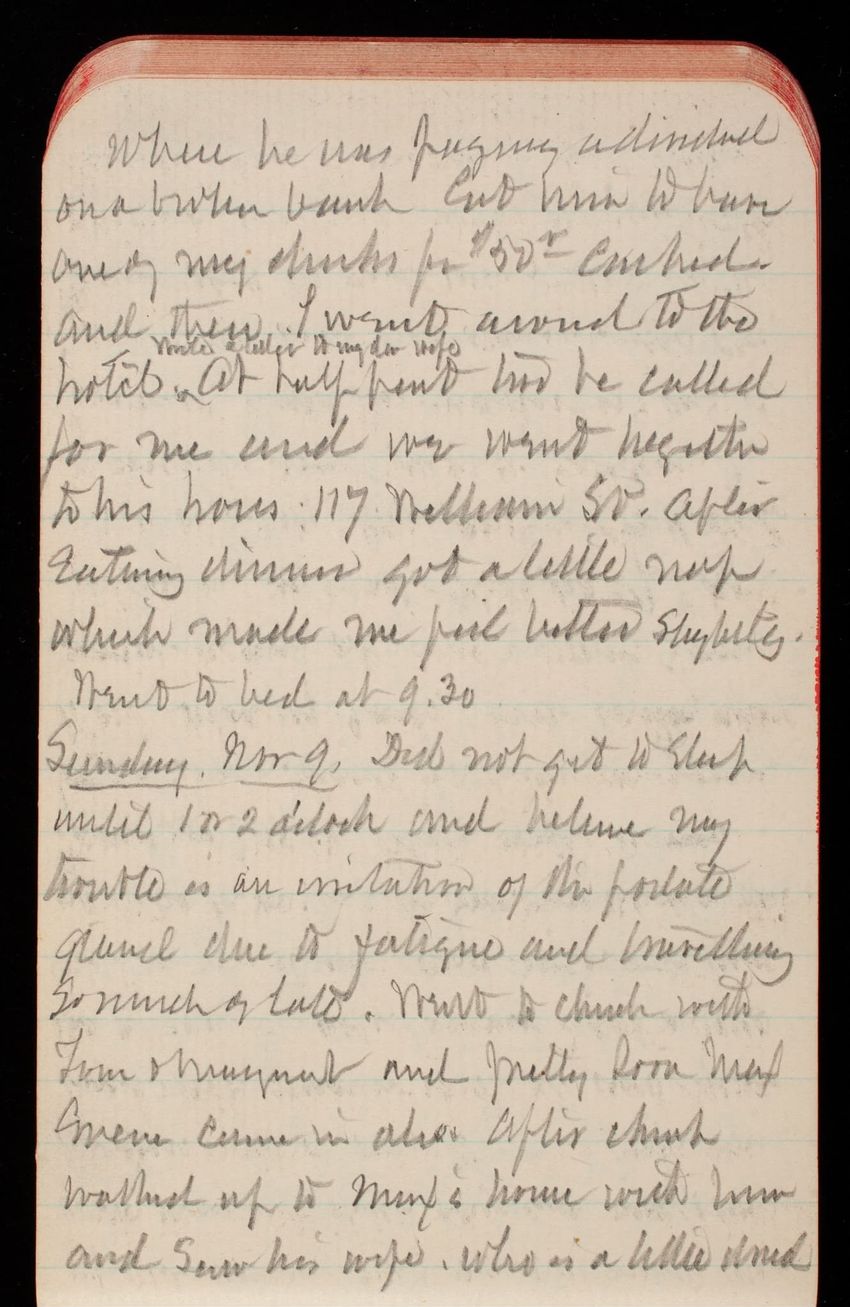 Where he was paying a dividend
on a broken bank Got him to have
one of my checks for $50 cashed
and then I went around to the
wrote a letter to my dear wife
hotel. At half past two he called
for me and we went together
to his house 117 William St. After
Eating dinner got a little nap
which made me feel better slightly.
Went to bed at 9.30
Sunday. Nov 9. Did not get to Sleep
until 1 or 2 o'clock and believe my
trouble is an irritation of the postate
gland due to fatigue and travelling
So much of late. Went to church with
Tom & Margaret and pretty soon Max
Greene came in also After church
walked up to Max's home with him
and Saw his wife. who is a little dried